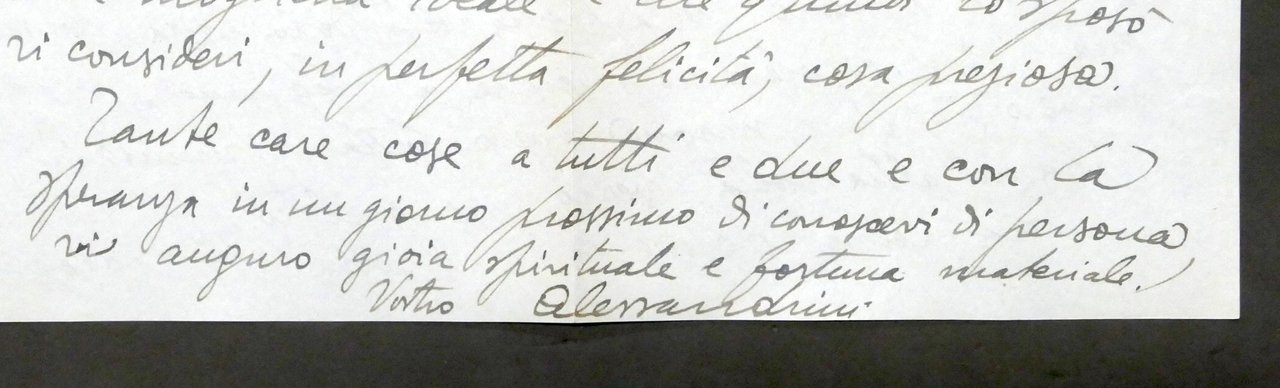 moglie ideale e che quindi lo sposo
si consideri, in perfetta felicità, cosa preziosa.
Tante care cose a tutti e due e con la
speranza in un giorno prossimo di conoscervi di persona
vi auguro gioia spirituale e fortuna materiale.
Vostro Alessandrini